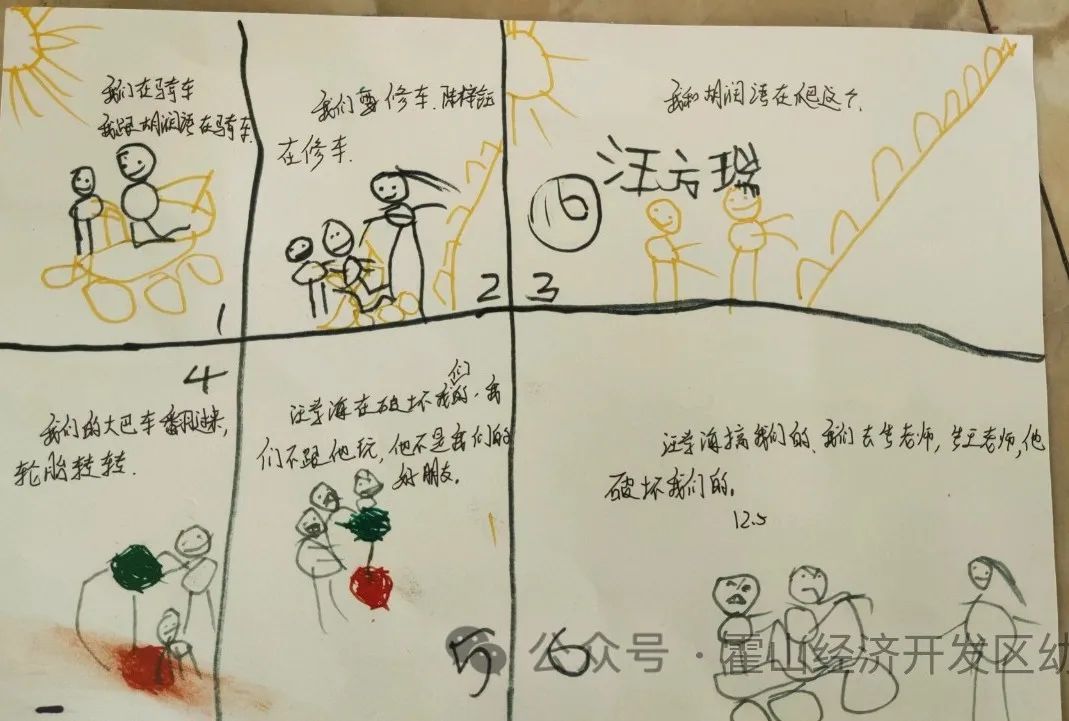 我们在骑车
我跟胡润语在骑车
1
我们要修车.陈梓钰
在修车.
2
我和胡润语在爬这个.
16
汪方瑞
3
4
我们的大巴车翻过来,
轮胎转转.
汪学海在破坏我们的.我
们不跟他玩,他不是我们的
好朋友。
5
汪学海搞我们的、我们去告老师,告王老师,他
破坏我们的。
12.5
6
公众号·霍山经济开发区幼